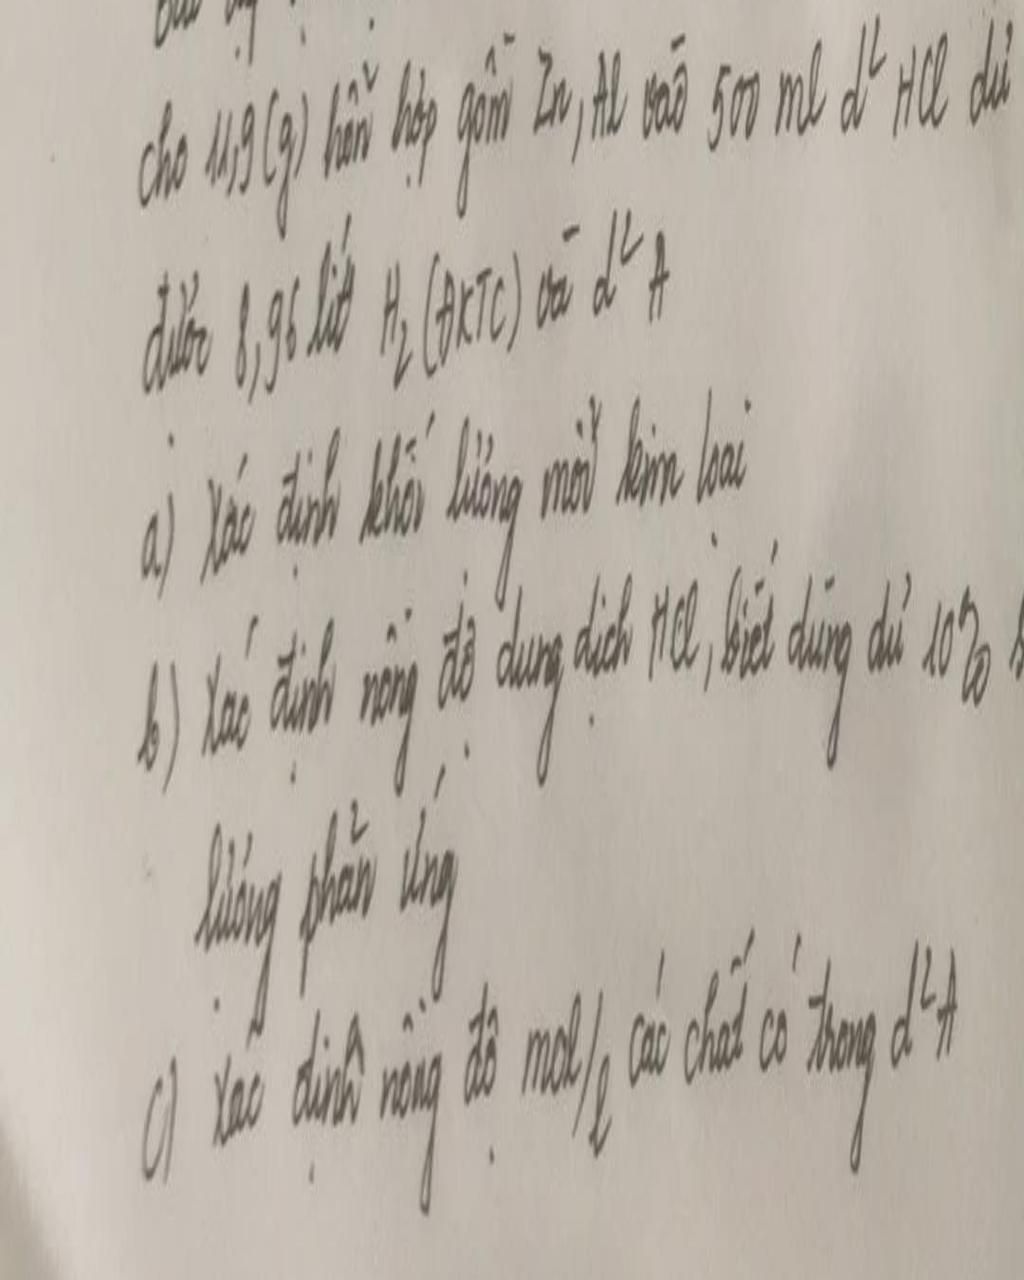 cho 11,9(g) hỗn hợp gồm Zn, Al vào 500 ml d² HCl dư
được 8,96 lít H₂ (ĐKTC) và d² A
a) Xác định khối lượng mỗi kim loại
b) Xác định nồng độ dung dịch HCl, biết dùng dư 10%
lượng phản ứng
c) Xác định nồng độ mol/l các chất có trong d² A